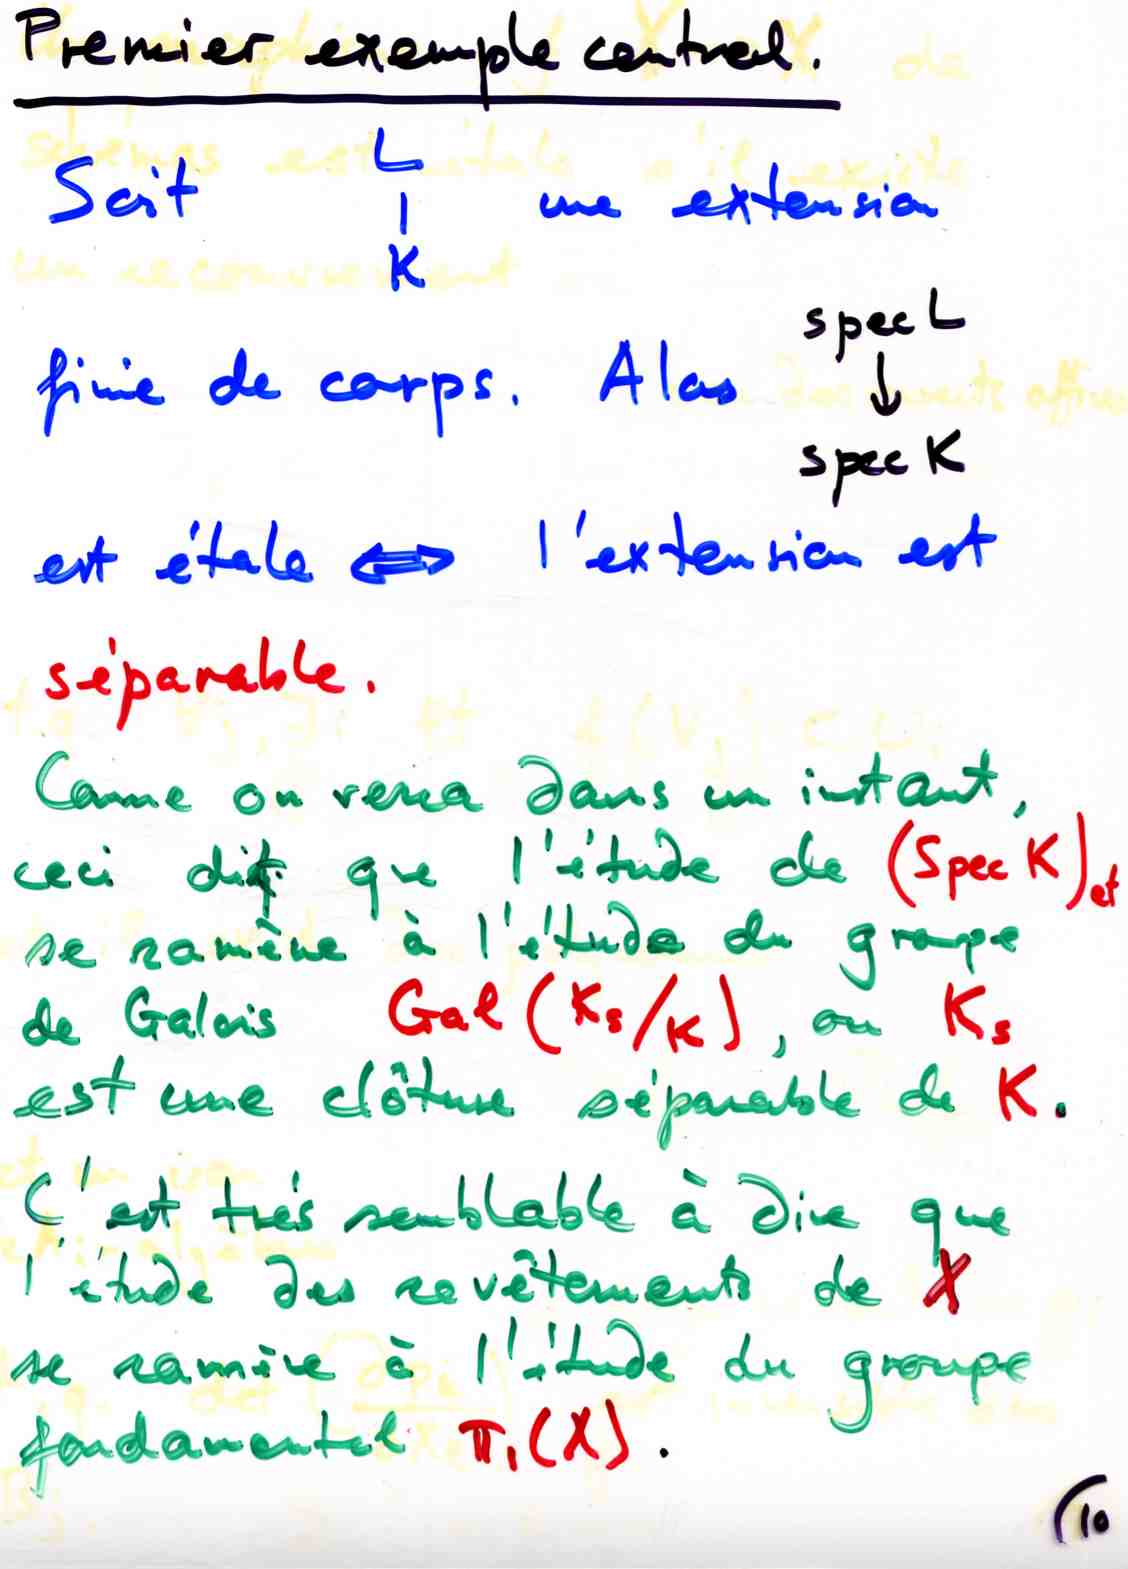 Premier exemple central.
L
Soit | une extension
K
spec L
finie de corps. Alors ↓
spec K
est étale ⇔ l'extension est
séparable.
Comme on verra dans un instant,
ceci dit que l'étude de (Spec K)et
se ramène à l'étude du groupe
de Galois Gal(Ks/K), ou Ks
est une clôture séparable de K.
C'est très semblable à dire que
l'étude des revêtements de X
se ramène à l'étude du groupe
fondamental π₁(X).
10